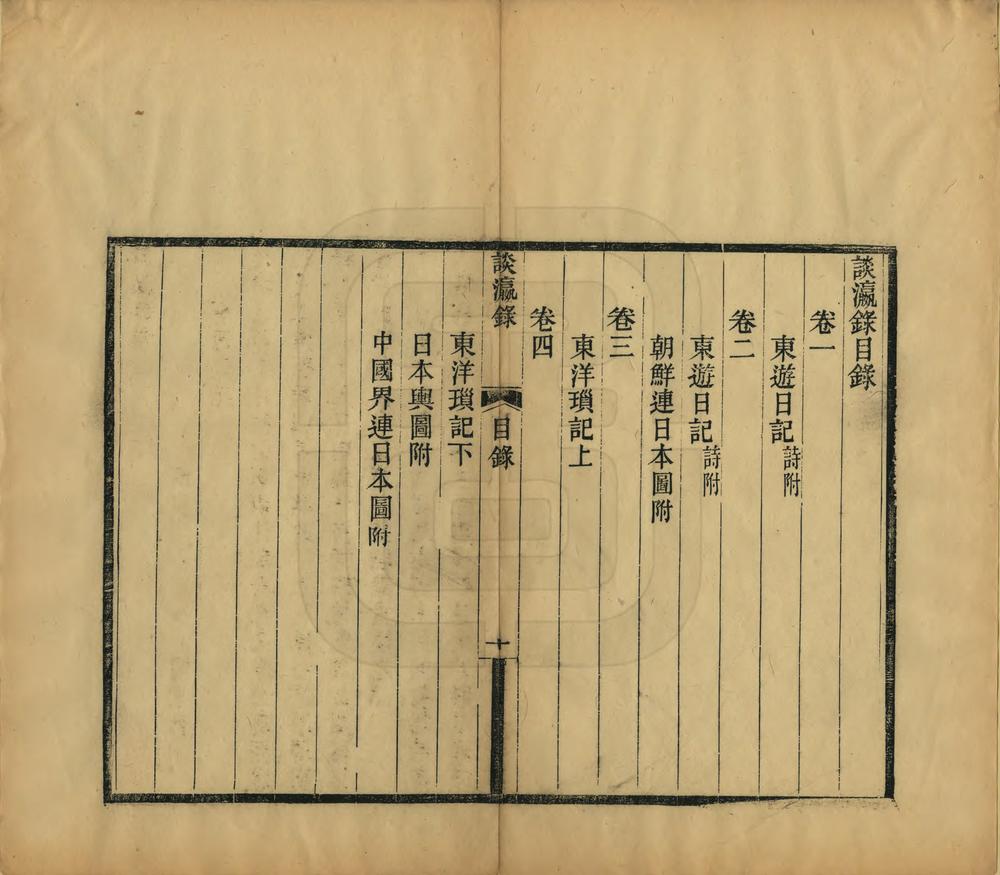 談瀛錄目錄
卷一
東遊日記詩附
卷二
東遊日記詩附
朝鮮連日本圖附
卷三
東洋瑣記上
卷四
談瀛錄
目錄
十
東洋瑣記下
日本輿圖附
中國界連日本圖附